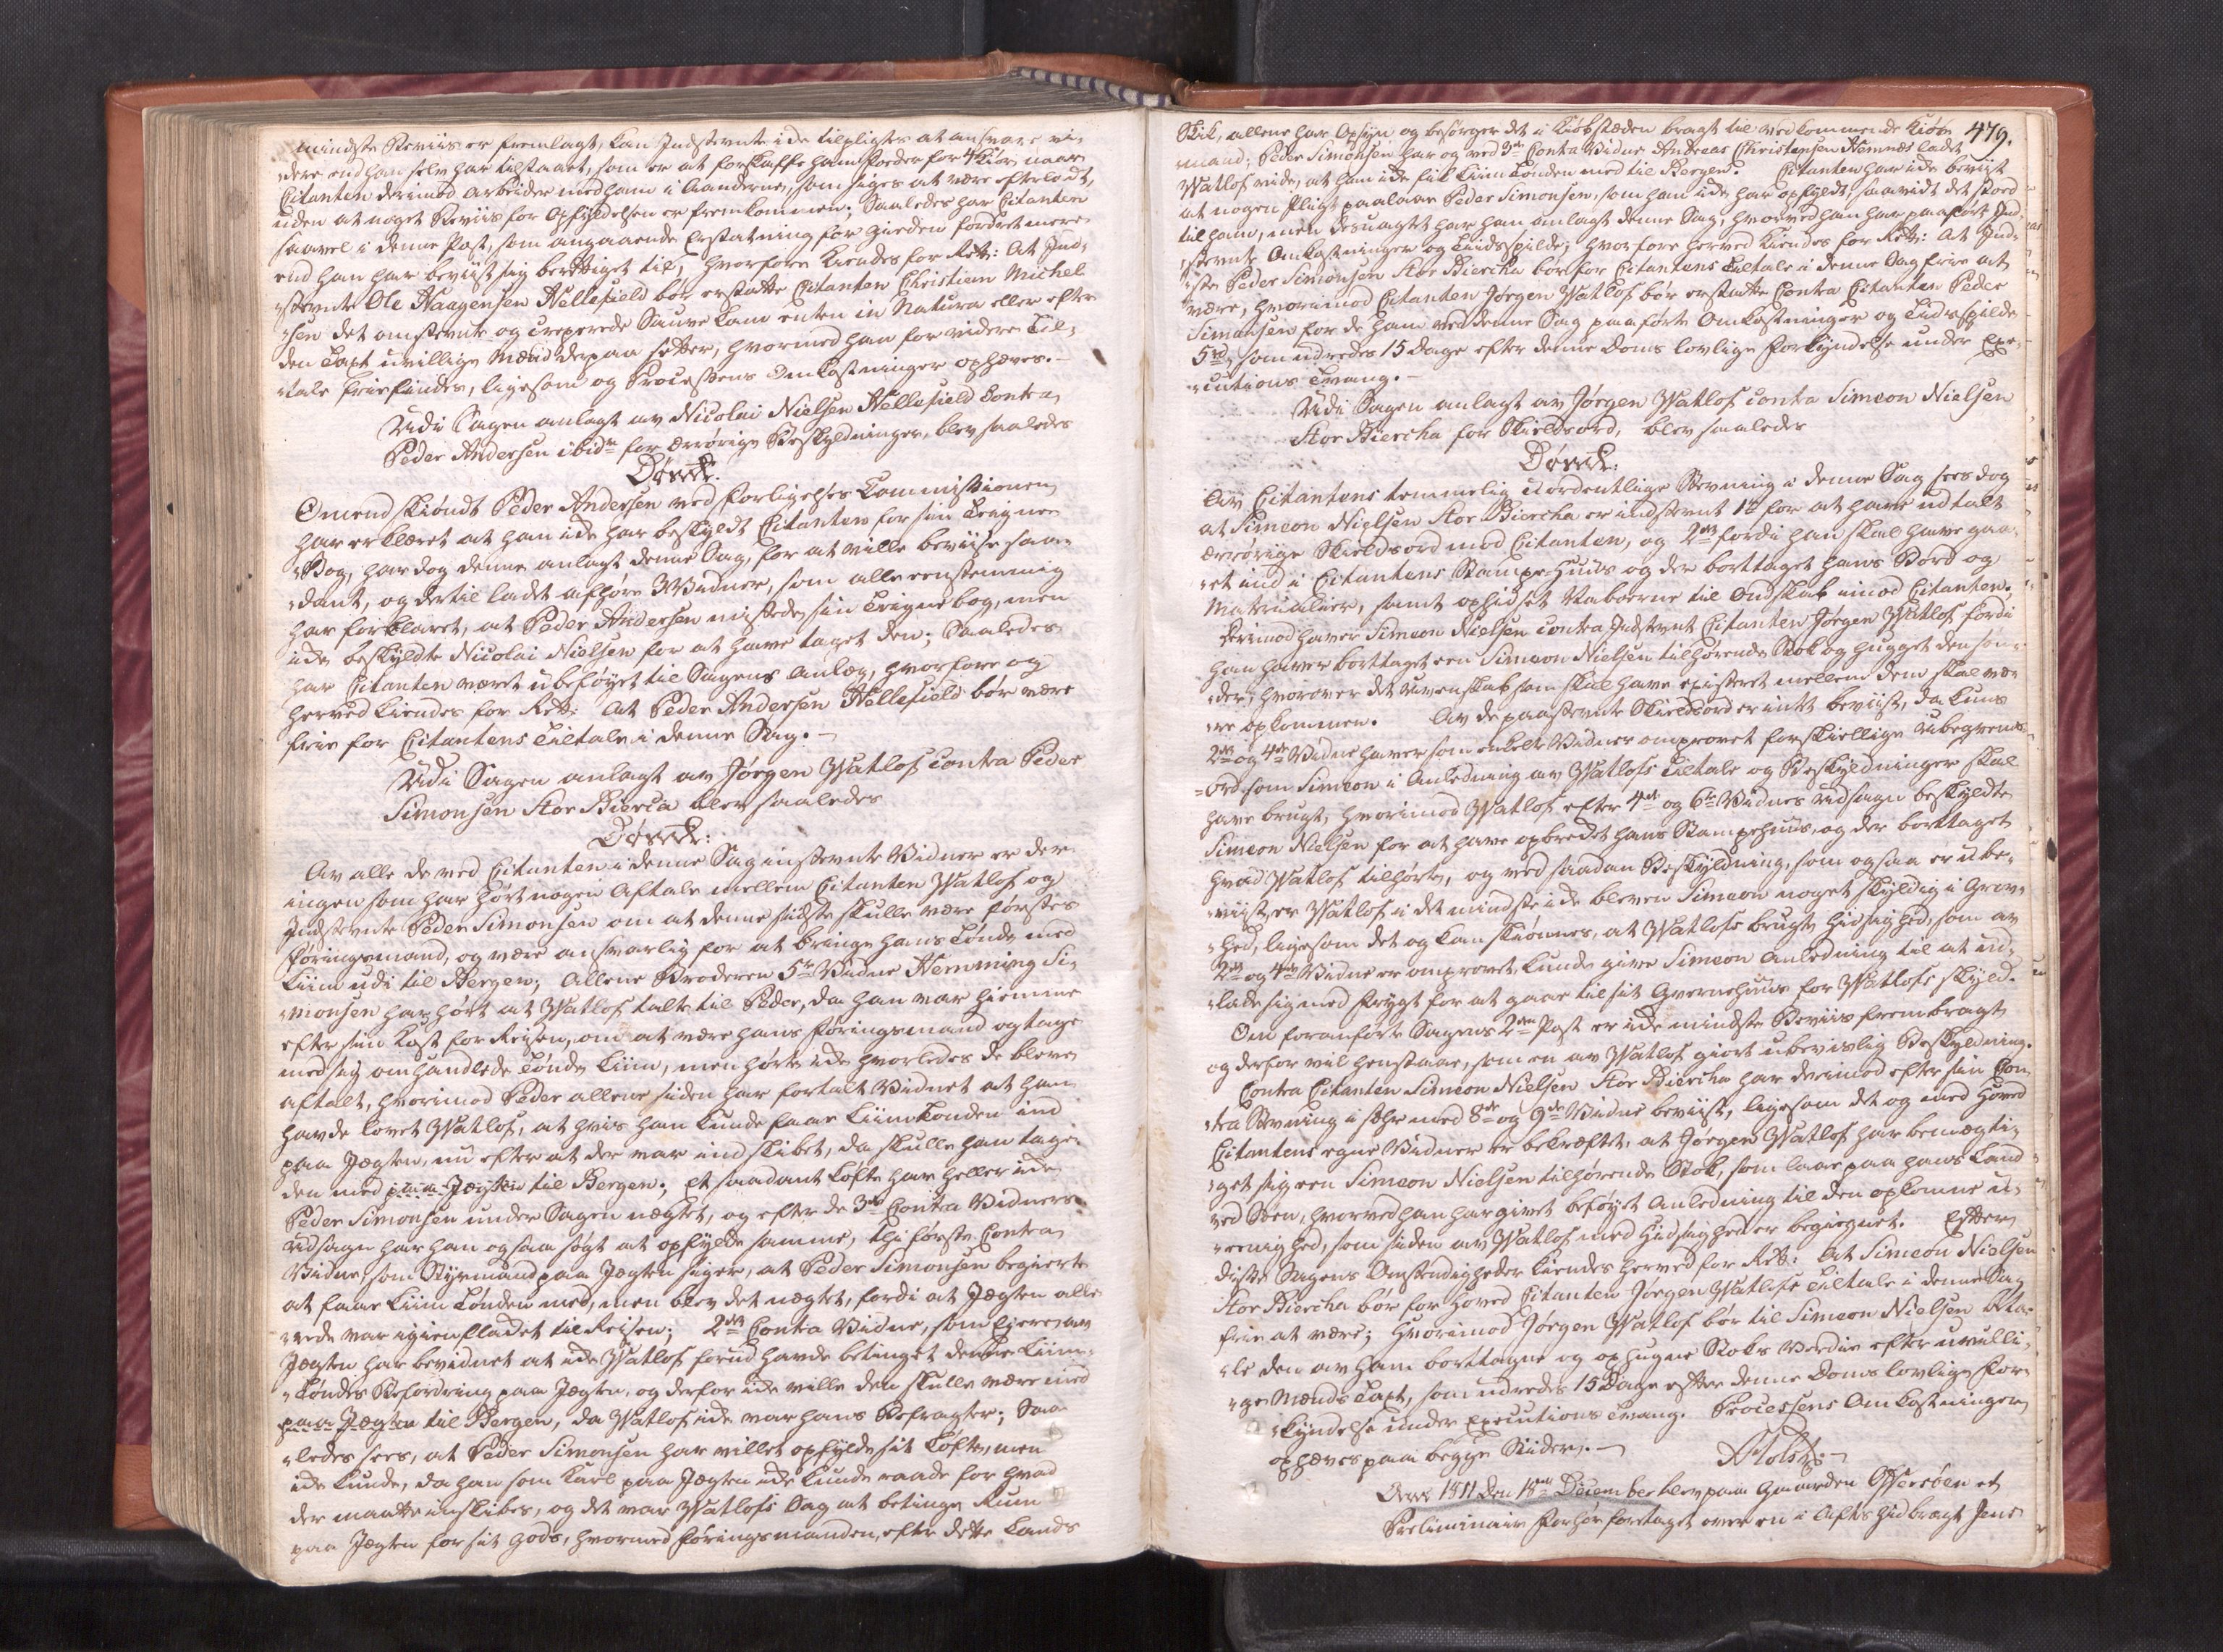 mindste Beviis er fremlagt, kan Indstevnte icke tilpligtes at ansvare vi-
dere end han selv har tilstaaet, som er at forskaffe ham foeder for 4 Kiør naar
Citanten derimod arbeider med ham i Aanderne, som siges at være efterladt,
uden at noget Beviis for Opfyldelsen er fremkommen; Saaledes har Citanten
saavel i denne Post, som angaaende Erstatning for Gierden fordret mere
end han har beviist sig berettiget til, hvorfore kiendes for Rett: At Ind-
stevnte Ole Haagensen Hellefield bør erstatte Citanten Christian Michel-
sen det omstevnte og creperede Sauve Lam enten in Natura eller efter
den Taxt uvillige Mænd derpaa setter, hvormed han for videre Til-
tale friefindes, ligesom og Processens Omkostninger ophæves.-
Udi Sagen anlagt av Nicolai Nielsen Hellefield Contra
Peder Andersen ibidm for ærrørige Beskyldninger, blev saaledes
Dømt:
Omendskiøndt Peder Andersen ved Forligelses Commissionen
har erklæret at han icke har beskyldt Citanten for sin Teigne-
Bog, har dog denne anlagt denne Sag, for at ville beviise saa-
dant, og dertil ladet afhøre Vidner, som alle eenstemmig
har forklaret, at Peder Andersen mistede sin Teignebog, men
icke beskyldte Nicolai Nielsen for at have taget den; Saaledes
har Citanten været ubeføyet til Sagens Anlæg, hvorfore og
herved kiendes for Rett: At Peder Andersen Hellefield bør være
frie for Citantens Tiltale i denne Sag.-
Udi Sagen anlagt av Jørgen Watlof contra Peder
Simonsen Stor Biercka blev saaledes
Dømt:
Av alle de ved Citanten i denne Sag instevnte Vidner er der
ingen som har hørt nogen Aftale mellem Citanten Watlof og
Indstevnte Peder Simonsen om at denne sidste skulle være førstes
Føringsmand, og være ansvarlig for at bringe hans Tønde med
Liim udi til Bergen; Allene Broderen 5te Vidne Hemming Si-
monsen har hørt at Watlof talte til Peder, da han var hiemme
efter sin Kost for Reisen, om at være hans Føringsmand og tage
med sig omhandlede Tønde Liim, men hørte icke hvorledes de bleve
aftalt, hvorimod Peder allene siden har fortalt Vidnet at han
havde lovet Watlof, at hvis han kunde faae Liimtønden ind
paa Jægten, nu efter at der var indskibet, da skulle han tage
den med paa Jægten til Bergen; et saadant Løfte har heller icke
Peder Simonsen under Sagen nægtet, og efter de 3de Contra Vidners
Udsagn har han ogsaa søgt at opfylde samme, thi første Contra
Vidne, som Styrmand paa Jægten siger, at Peder Simonsen begierte
at faae Liim Tønden med, men blev det nægtet, fordi at Jægten alle-
rede var igienfladet til Reisen; 2det Contra Vidne, som Eiere av
Jægten har bevidnet at icke Watlof forud havde betinget denne Liim-
Tøndes Befordring paa Jægten, og derfor icke ville den skulle være med
paa Jægten til Bergen, da Watlof icke var hans Befragter; Saa-
ledes sees, at Peder Simonsen har villet opfylde sit Løfte, men
icke kunde, da han som Karl paa Jægten icke kunde raade for hvad
der maatte inskibes, og det var Watlofs Sag at betinge Rum
paa Jægten for sit Gods, hvormed Føringsmanden, efter dette Lands
Skik, allene har Opsyn og besørger det i Kiøbstæden bragt til vedkommende Kiøb- 479.
mand; Peder Simonsen har og ved 3de Contra Vidne Andreas Christensen Nennes ladet
Watlof vide, at han icke fik Liimtønden med til Bergen. Citanten har icke beviist
at nogen Pligt paalaae Peder Simonsen, som han icke har opfyldt, saavidt det stoed
til ham, men desuagtet har han anlagt denne Sag, hvorved han har paaført Ind-
stevnte Omkostninger og Tiidsspilde; hvorfore herved kiendes for Rett: At Ind-
ste Peder Simonsen Stor Biercka bør for Citantens Tiltale i denne Sag frie at
være, hvorimod Citanten Jørgen Watlof bør erstatte Contra Citanten Peder
Simonsen for de ham ved denne Sag paaførte Omkostninger og Tidsspilde
5 rd, som udredes 15 Dage efter denne Doms lovlige Forkyndelse under Exe-
cutions Tvang.-
Udi Sagen anlagt av Jørgen Watlof contra Simeon Nielsen
Stor Biercka for Skieldsord, blev saaledes
Dømt:
Av Citantens temmelig uordentlige Stevning i denne Sag sees dog
at Simeon Nielsen Stor Biercka er indstevnt 1te for at have udtalt
ærrørige Skieldsord mod Citanten, og 2det fordi han skal have gaa-
et ind i Citantens Stampe-Huus og der borttaget hans Bord og
Materialier, samt ophidset Naboerne til Ondskab imod Citanten.
Derimod haver Simeon Nielsen contra Indstevnt Citanten Jørgen Watlof fordi
han haver borttaget een Simeon Nielsen tilhørende Stok og hugget den søn-
der, hvorover det Uvenskab som skal have existeret mellem dem skal væ-
re opkommen. Av de paastevnte Skieldsord er intet beviist, da kuns
2det og 4de Vidne haver som enkelte Vidner omprovet forskiellige Ubeqvems-
Ord som Simeon i Anledning av Watlofs Tiltale og Beskyldninger skal
have brugt, hvorimod Watlof efter 4de og 6te Vidnes Udsagn beskyldte
Simeon Nielsen for at have opbrudt hans Stampehuus, og der borttaget
hvad Watlof tilhørte, og ved saadan Beskyldning, som ogsaa er ube-
viist, er Watlof i det mindste icke bleven Simeon noget skyldig i Grov-
hed, ligesom det og kan skiønnes, at Watlofs brugte Hidsighed, som av
2det og 4de Vidne er omprovet, kunde give Simeon Anledning til at ud-
lade sig med Frygt for at gaae til sit Qvernehuus for Watlofs skyld.
Om foranførte Sagens 2den Post er icke mindste Beviis frembragt
og derfor vil henstaae, som en av Watlof giort ubeviislig Beskyldning.
Contra Citanten Simeon Nielsen Stor Biercka har derimod efter sin Con-
tra Stevning i sær med 8de og 9de Vidne beviist, ligesom det og med Hoved
Citantens egne Vidner er bekræftet, at Jørgen Watlof har bemægti-
get sig een Simeon Nielsen tilhørende Stok, som laae paa hans Land
ved Søen, hvorved han har givet beføyet Anledning til den opkomne U-
eenighed, som siden av Watlof med Hidsigheder begiegnet. Efter
disse Sagens Omstendigheder kiendes herved for Rett: At Simeon Nielsen
Stor Biercka bør for Hoved Citanten Jørgen Watlofs Tiltale i denne Sag
frie at være; Hvorimod Jørgen Watlof bør til Simeon Nielsen beta-
le den av ham borttagne og ophugne Stoks Verdie efter uvilli-
ge Mænds Taxt, som udredes 15 Dage efter denne Doms lovlige For-
kyndelse under Executions Tvang. Processens Omkostninger
ophæves paa begge Sider.-
Holst.-
Anno 1811 den 18de December blev paa Gaarden
Preliminair Forhør foretaget over en i Aftes hidbragt Jens